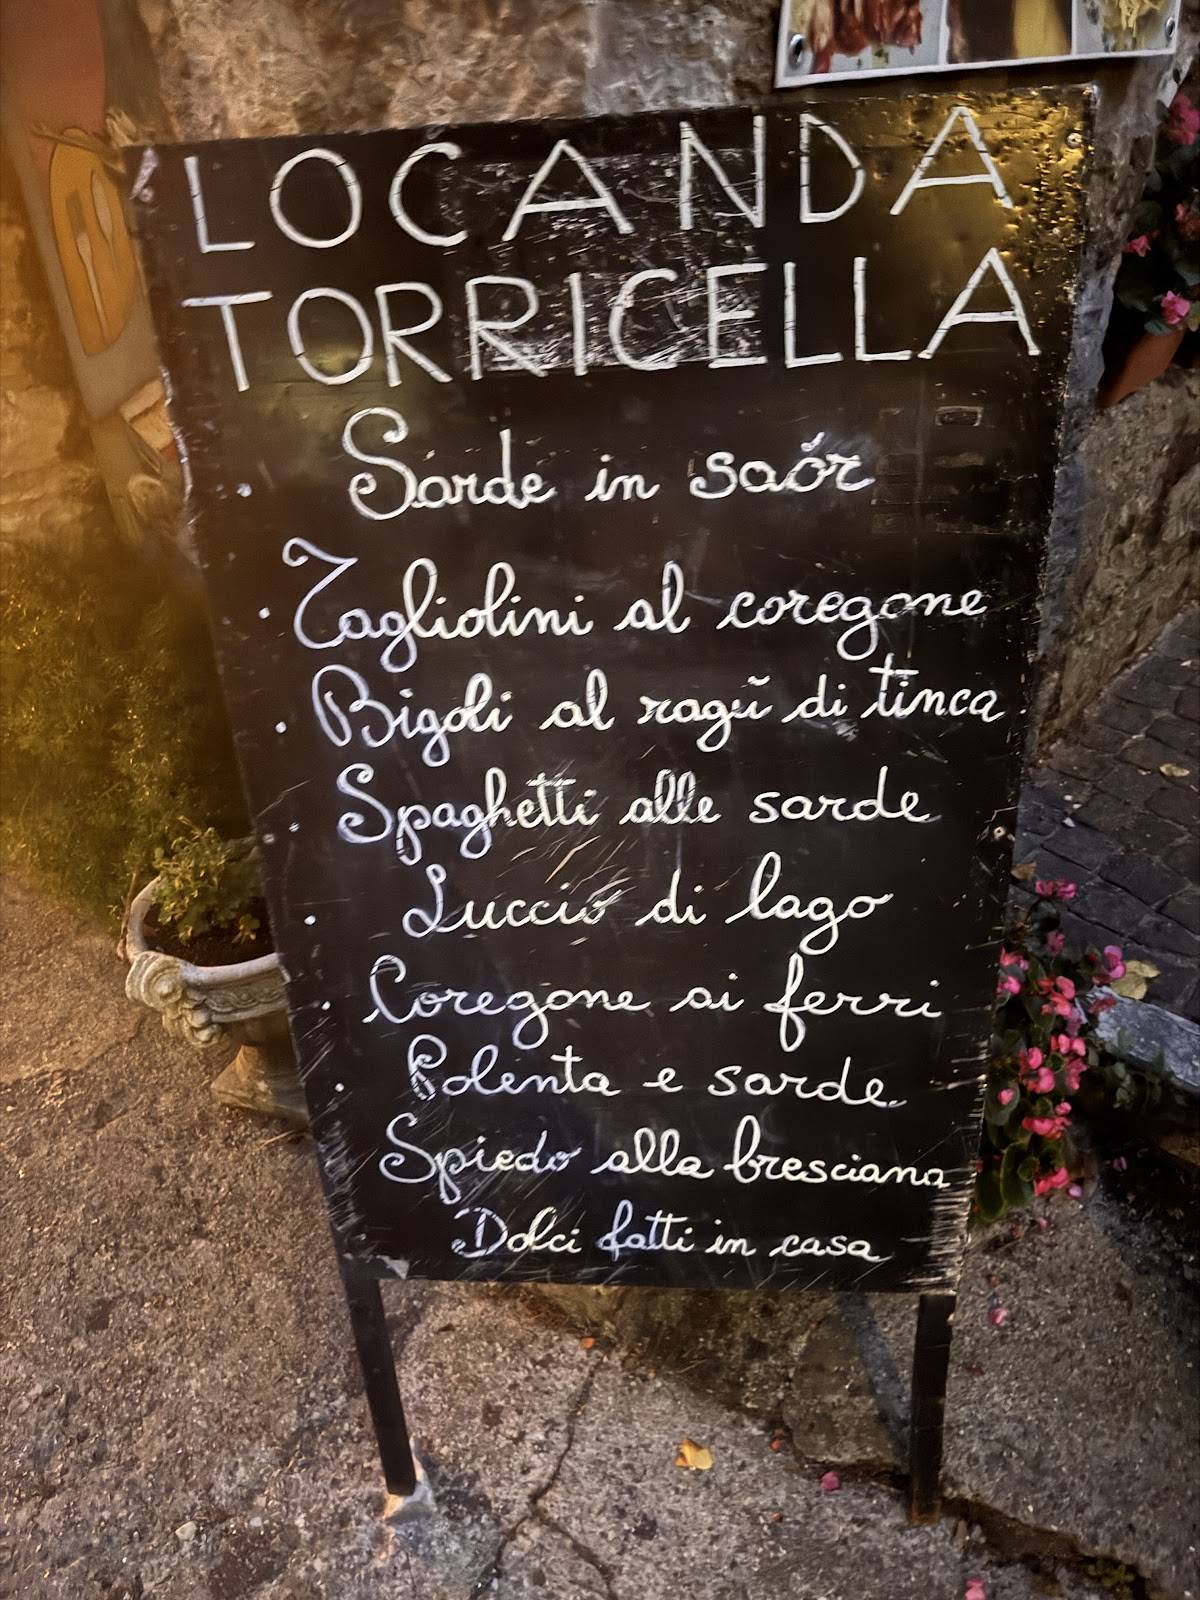 LOCANDA
TORRICELLA
Sarde in saŏr
Tagliolini al coregone
Bigoli al ragŭ di tinca
Spaghetti alle sarde
Luccio di lago
Coregone ai ferri
Polenta e sarde
Spiedo alla bresciana
Dolci fatti in casa